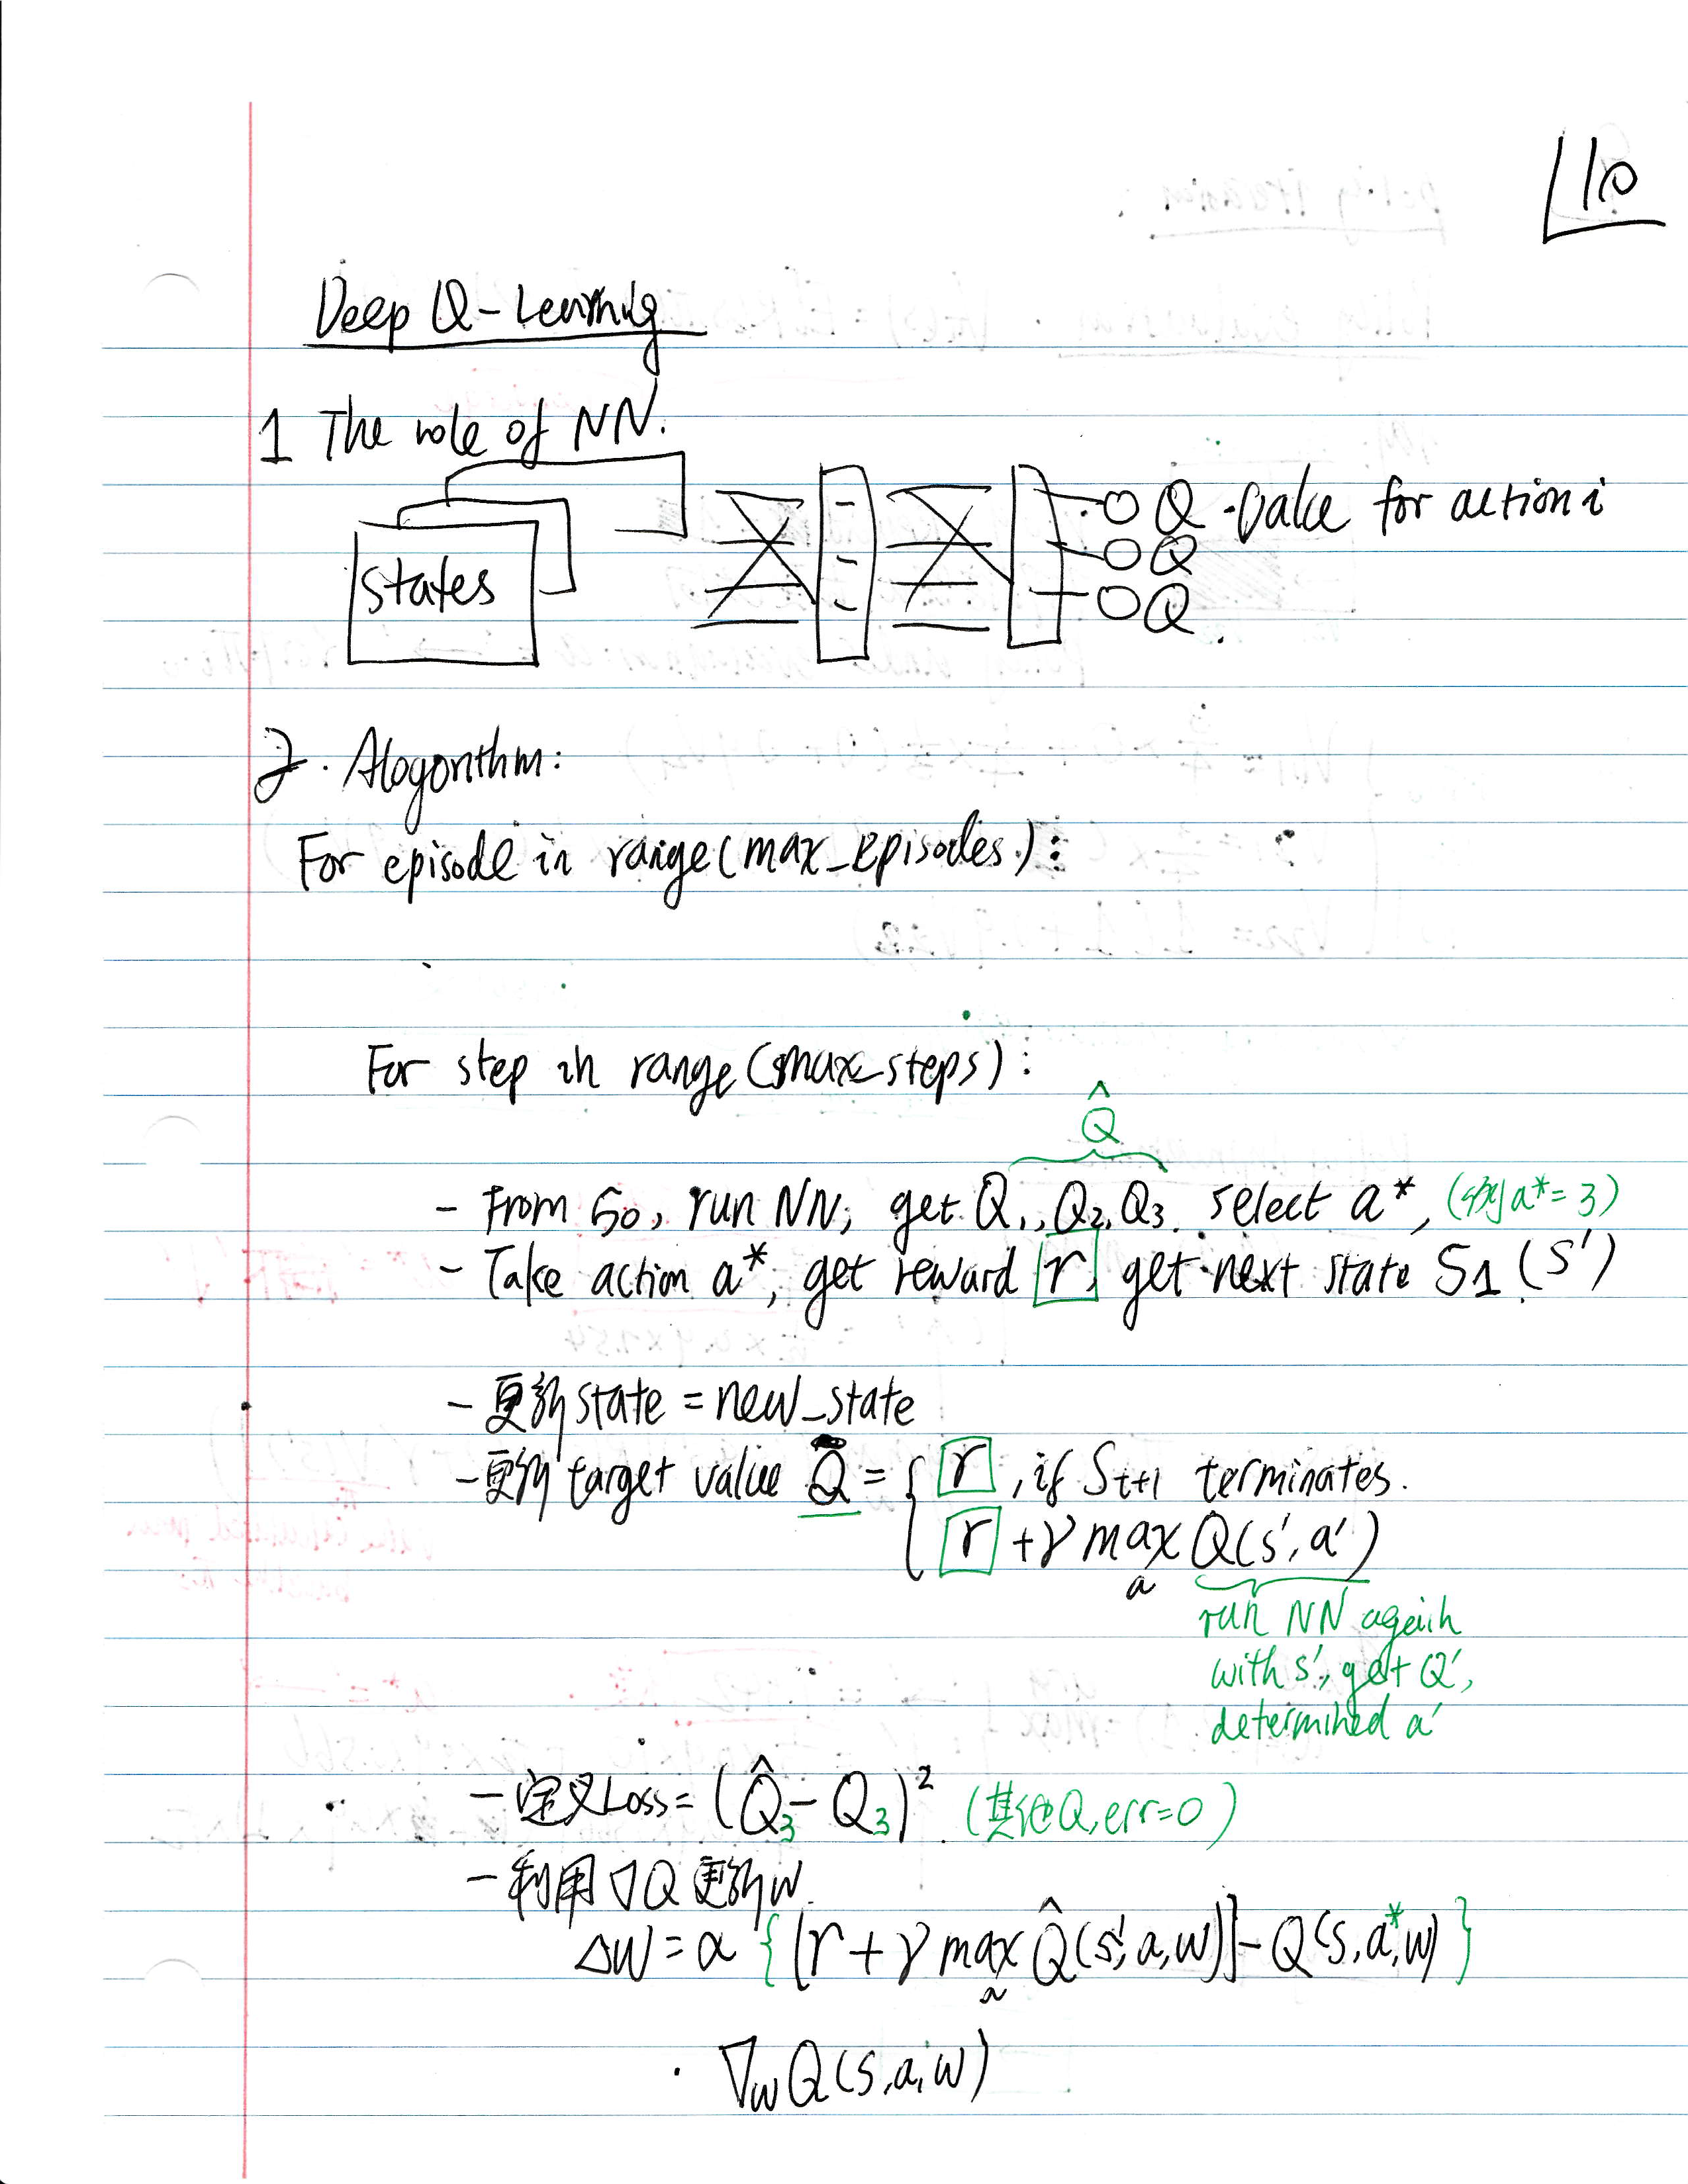 110
Deep Q-Learning
1 The role of NN.
states
Q-value for action i
Q
Q
2. Alogorithm:
For episode in range(max_episodes):
For step in range(max_steps):
Q̂
- From S0, run NN, get Q1, Q2, Q3. select a*, (例 a*=3)
- Take action a*, get reward r, get next state S1 (S')
- 更新 state = new_state
- 更新 target value Q = { r, if St+1 terminates.
r + γ max Q(s', a')
a
run NN again
with s', get Q',
determined a'
- 定义 Loss = (Q̂3 - Q3)² (其他Q, err=0)
- 利用 ∇Q 更新 w.
Δw = α {[r + γ max Q̂(s', a, w)] - Q(s, a*, w)}
a
· ∇w Q(s, a, w)